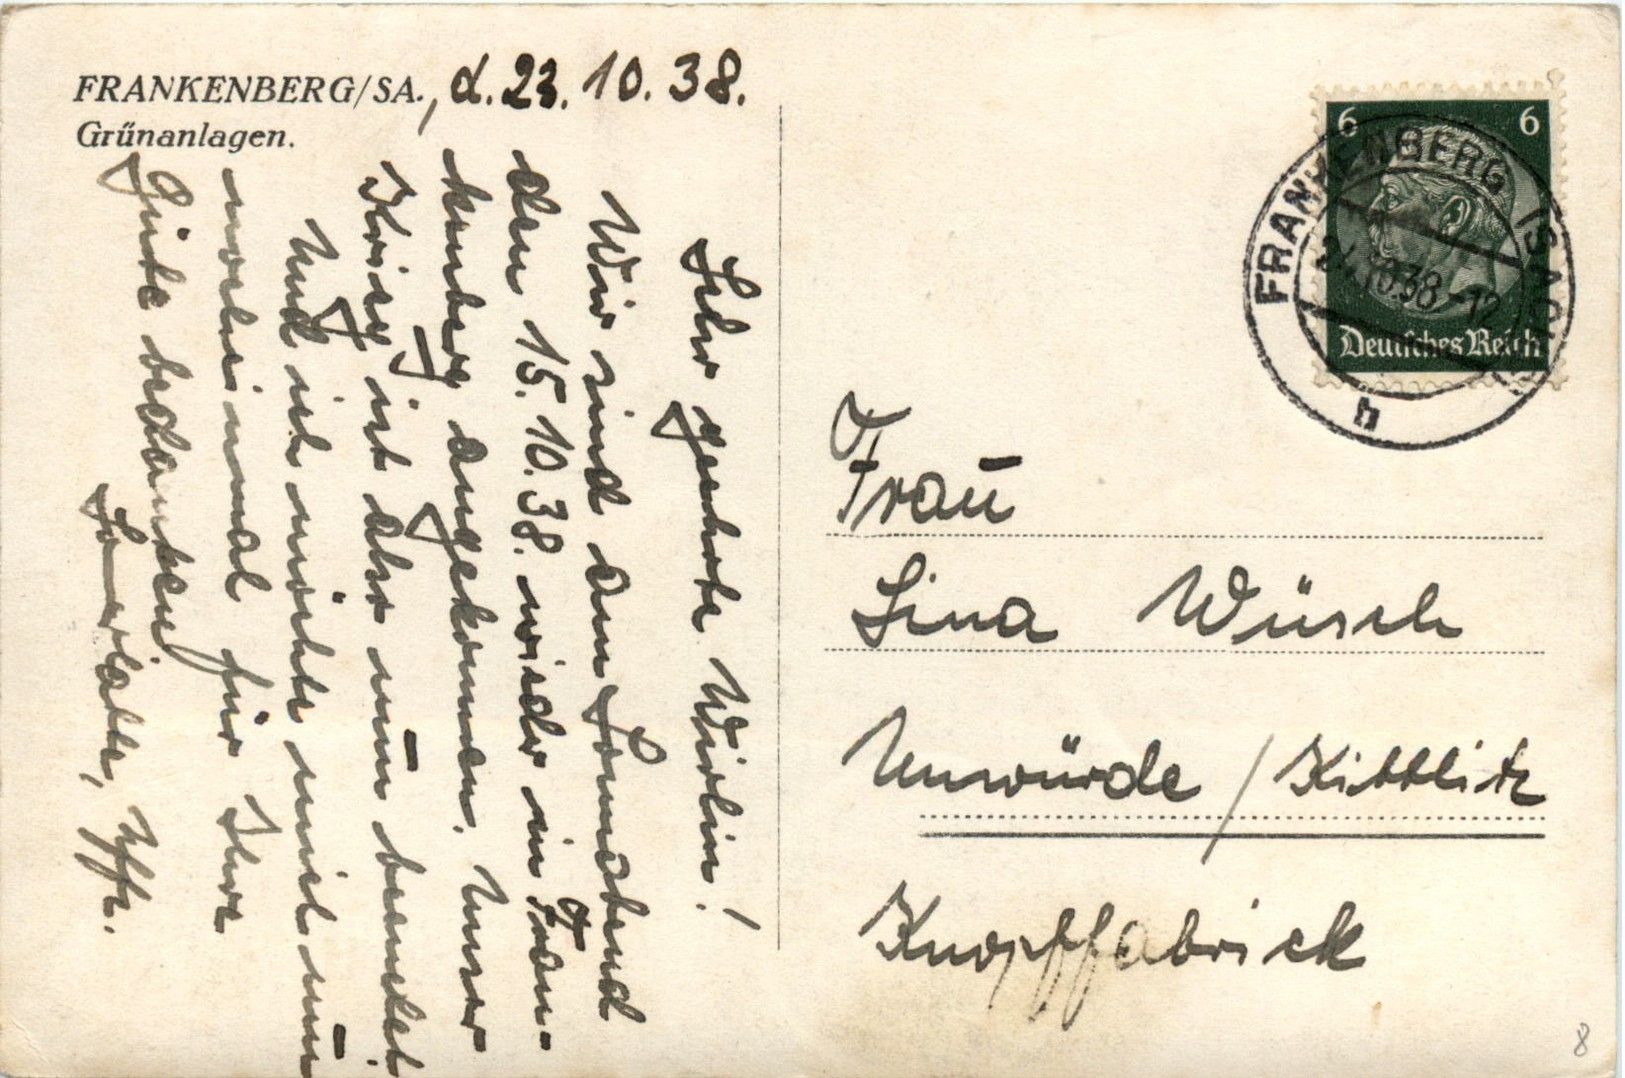 FRANKENBERG/SA., d. 23. 10. 38.
Grünanlagen.
Sehr geehrte Wirtin!
Wir sind am Sonnabend
den 15. 10. 38. wieder in Fran-
kenberg angekommen. Unser
Krieg ist aber nun beendet
Und ich möchte mich nun
nocheinmal für Ihre
Güte bedanken
Soldat
6 6
Deutsches Reich
FRANKENBERG (SACHS)
24.10.38-12
h
Frau
Lina Wünsch
Unwürde / Kittlitz
Knopffabrick
8